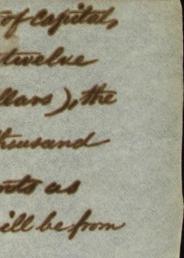 of capital,
twelve
llars), the
thousand
nts as
ill be from